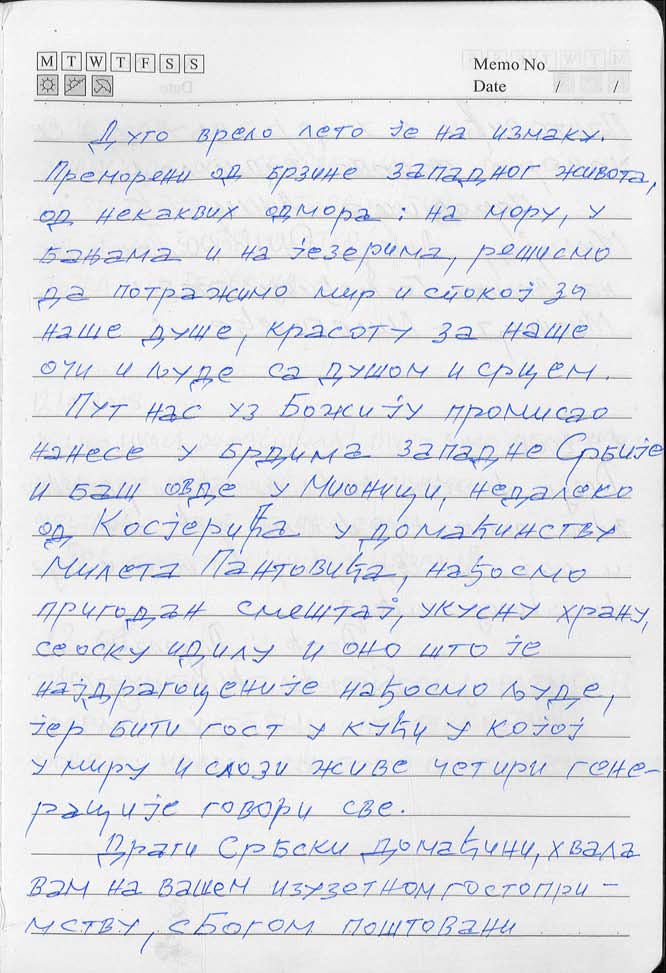 M T W T F S S
Memo No
Date / /
Дуго врело лето је на измаку.
Преморени од брзине западног живота,
од некаквих одмора: на мору, у
бањама и на језерима, решисмо
да потражимо мир и спокој за
наше душе, красоту за наше
очи и људе са душом и срцем.
Пут нас уз Божију промисао
нанесе у брдима западне Србије
и баш овде у Мионици, недалеко
од Косјерића у домаћинству
Милета Пантовића, нађосмо
пригодан смештај, укусну храну,
сеоску идилу и оно што је
најдрагоценије нађосмо људе,
јер бити гост у кући у којој
у миру и слози живе четири гене-
рације говори све.
Драги Србски домаћини, хвала
вам на вашем изузетном гостопри-
мству, сБогом поштовани